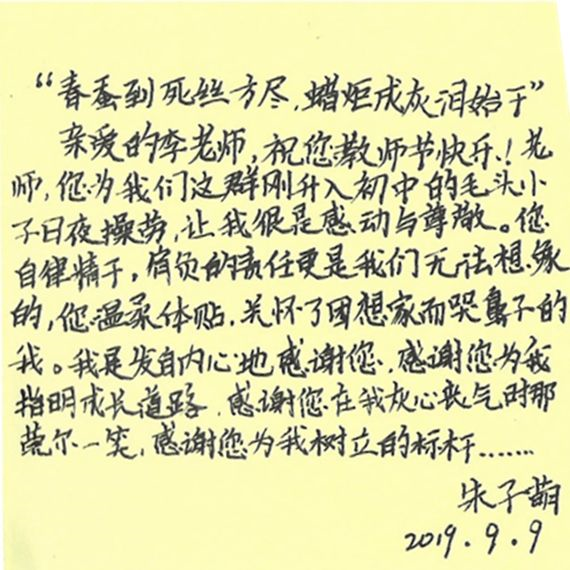 “春蚕到死丝方尽，蜡炬成灰泪始干”
亲爱的李老师，祝您教师节快乐！老
师，您为我们这群刚升入初中的毛头小
子日夜操劳，让我很是感动与尊敬。您
自律精干，肩负的责任更是我们无法想象
的，您温柔体贴，关怀了因想家而哭鼻子的
我。我是发自内心地感谢您，感谢您为我
指明成长道路，感谢您在我灰心丧气时那
莞尔一笑，感谢您为我树立的标杆……
朱子萌
2019.9.9